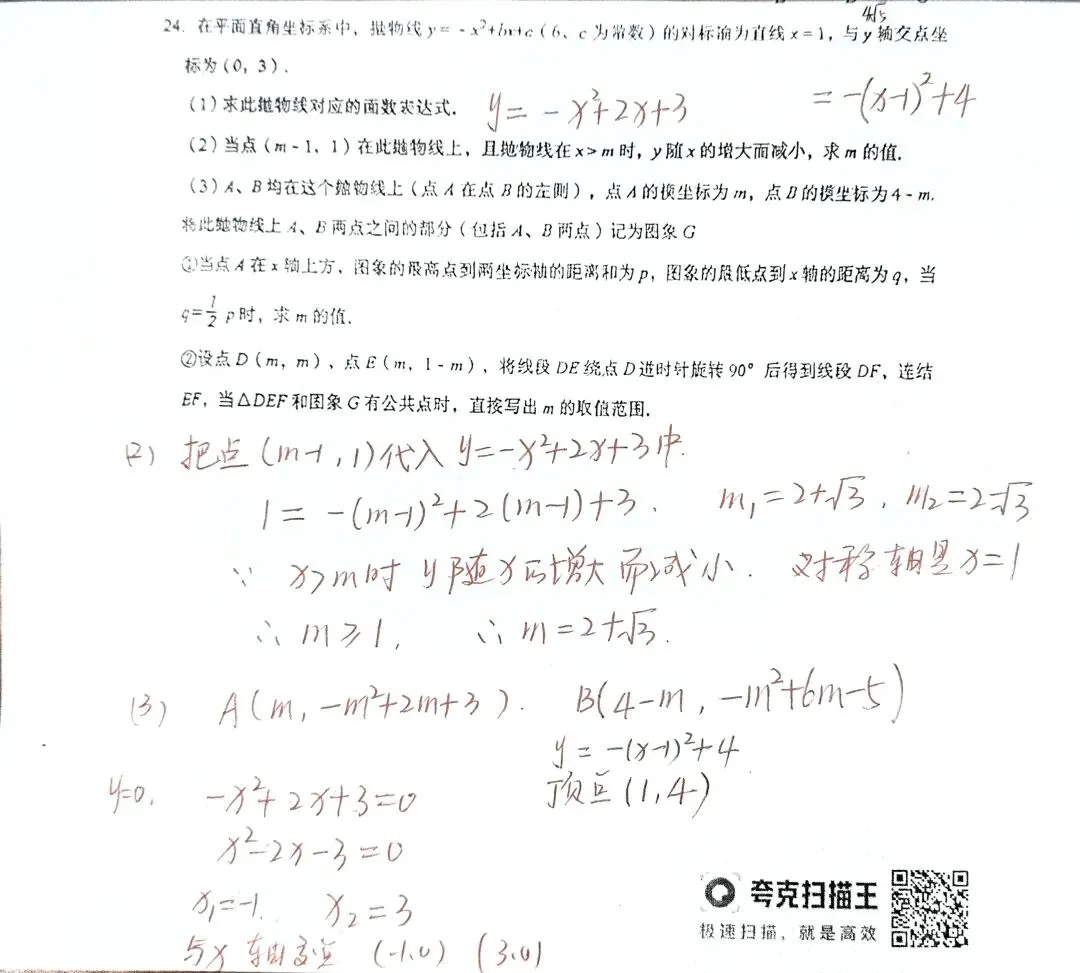 4√5
24. 在平面直角坐标系中，抛物线 y = - x²+bx+c（b、c 为常数）的对称轴为直线 x = 1，与 y 轴交点坐
标为 (0, 3).
(1) 求此抛物线对应的函数表达式. y = - x²+2x+3 = -(x-1)²+4
(2) 当点 (m - 1, 1) 在此抛物线上，且抛物线在 x > m 时，y 随 x 的增大而减小，求 m 的值.
(3) A、B 均在这个抛物线上（点 A 在点 B 的左侧），点 A 的横坐标为 m，点 B 的横坐标为 4 - m.
将此抛物线上 A、B 两点之间的部分（包括 A、B 两点）记为图象 G
①当点 A 在 x 轴上方，图象的最高点到两坐标轴的距离和为 p，图象的最低点到 x 轴的距离为 q，当
q = 1/2 p 时，求 m 的值.
②设点 D (m, m)，点 E (m, 1 - m)，将线段 DE 绕点 D 逆时针旋转 90° 后得到线段 DF，连结
EF，当△DEF 和图象 G 有公共点时，直接写出 m 的取值范围.
(2) 把点 (m-1, 1) 代入 y=-x²+2x+3中.
1 = -(m-1)²+2(m-1)+3. m₁=2+√3, m₂=2-√3
∵ x>m时 y随x的增大而减小. 对称轴是x=1
∴ m≥1, ∴ m=2+√3.
(3) A(m, -m²+2m+3). B(4-m, -m²+6m-5)
y = -(x-1)²+4
y=0, -x²+2x+3=0 顶点(1,4)
x²-2x-3=0
x₁=-1. x₂=3
与x轴交点 (-1,0) (3,0)
夸克扫描王
极速扫描，就是高效